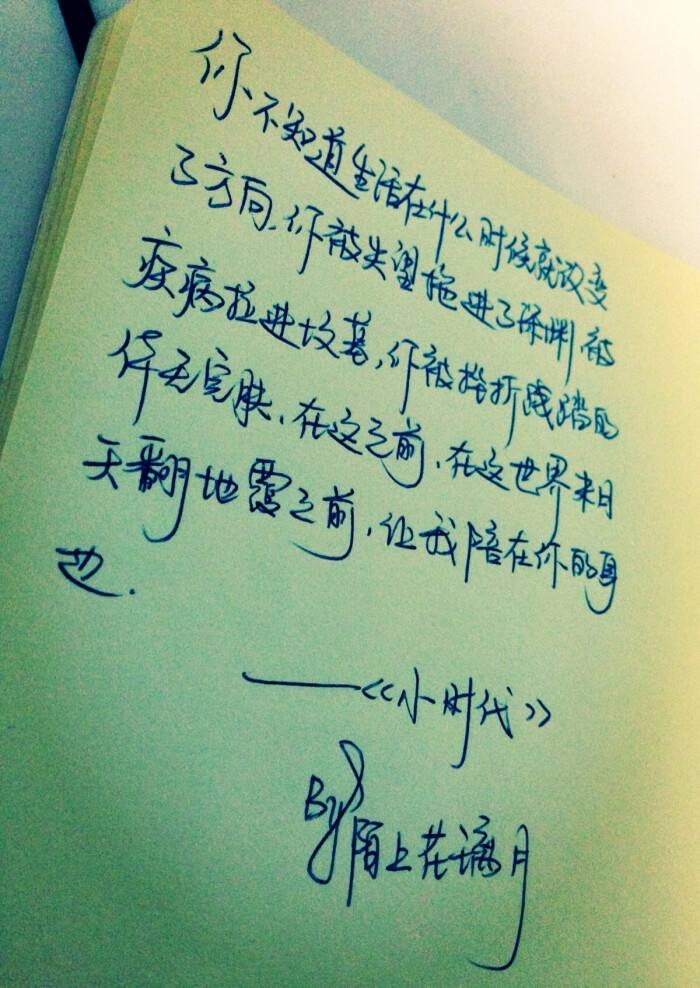 你不知道生活在什么时候就改变
了方向,你被失望拖进了深渊被
疾病拉进坟墓,你被挫折践踏的
体无完肤、在这之前,在这世界末日
天翻地覆之前,让我陪在你的身
边.
——《小时代》
By陌上花璃月